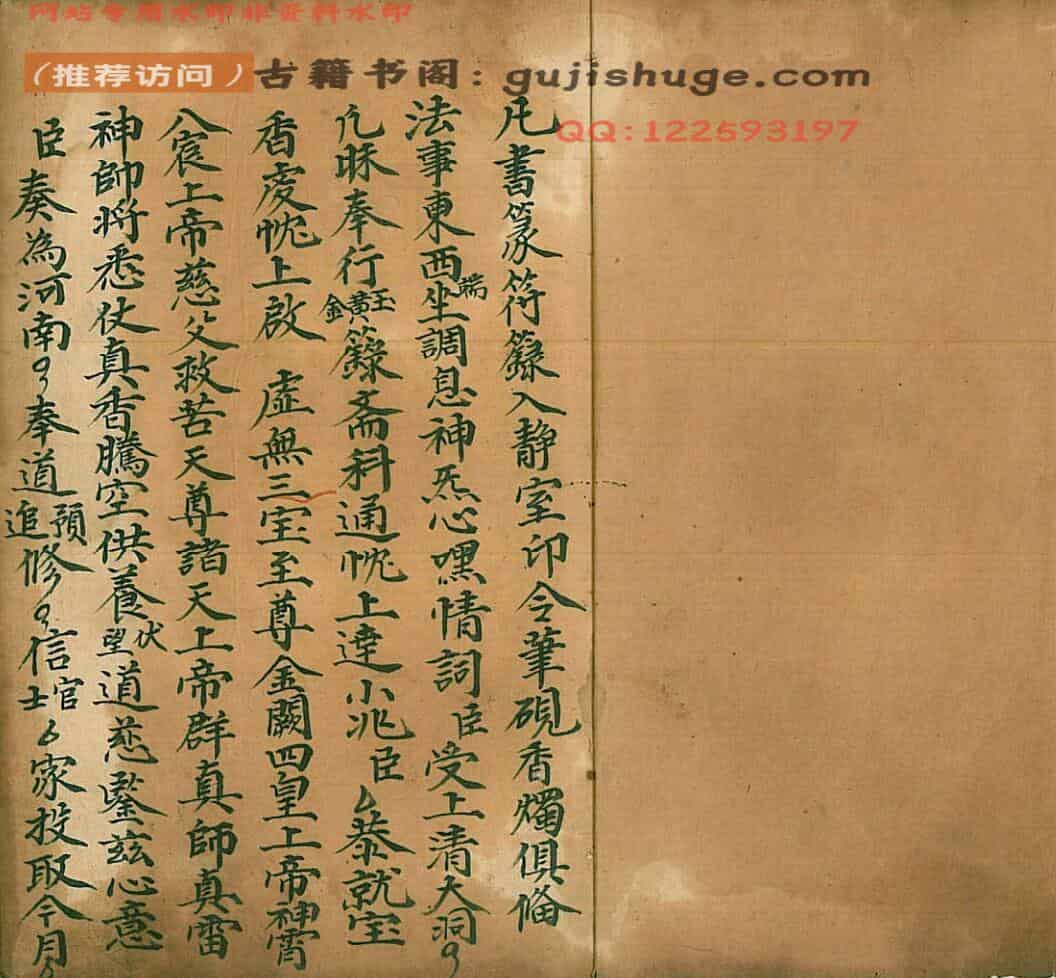 网站专用水印非资料水印
（推荐访问）古籍书阁：gujishuge.com
QQ:122593197
凡書篆符籙入静室印令筆硯香燭俱俻
法事東西端坐調息神炁心嘿情詞臣受上清大洞
凢昧奉行玉黄金籙斋科通忱上達小兆臣厶恭就宝
香虔忱上啟　虚無三宝至尊金闕四皇上帝神霄
八宸上帝慈父救苦天尊諸天上帝群真師真雷
神帥将悉仗真香騰空供養伏望道慈鑒茲心意
臣奏為河南奉道預追修信官士厶家投取今月